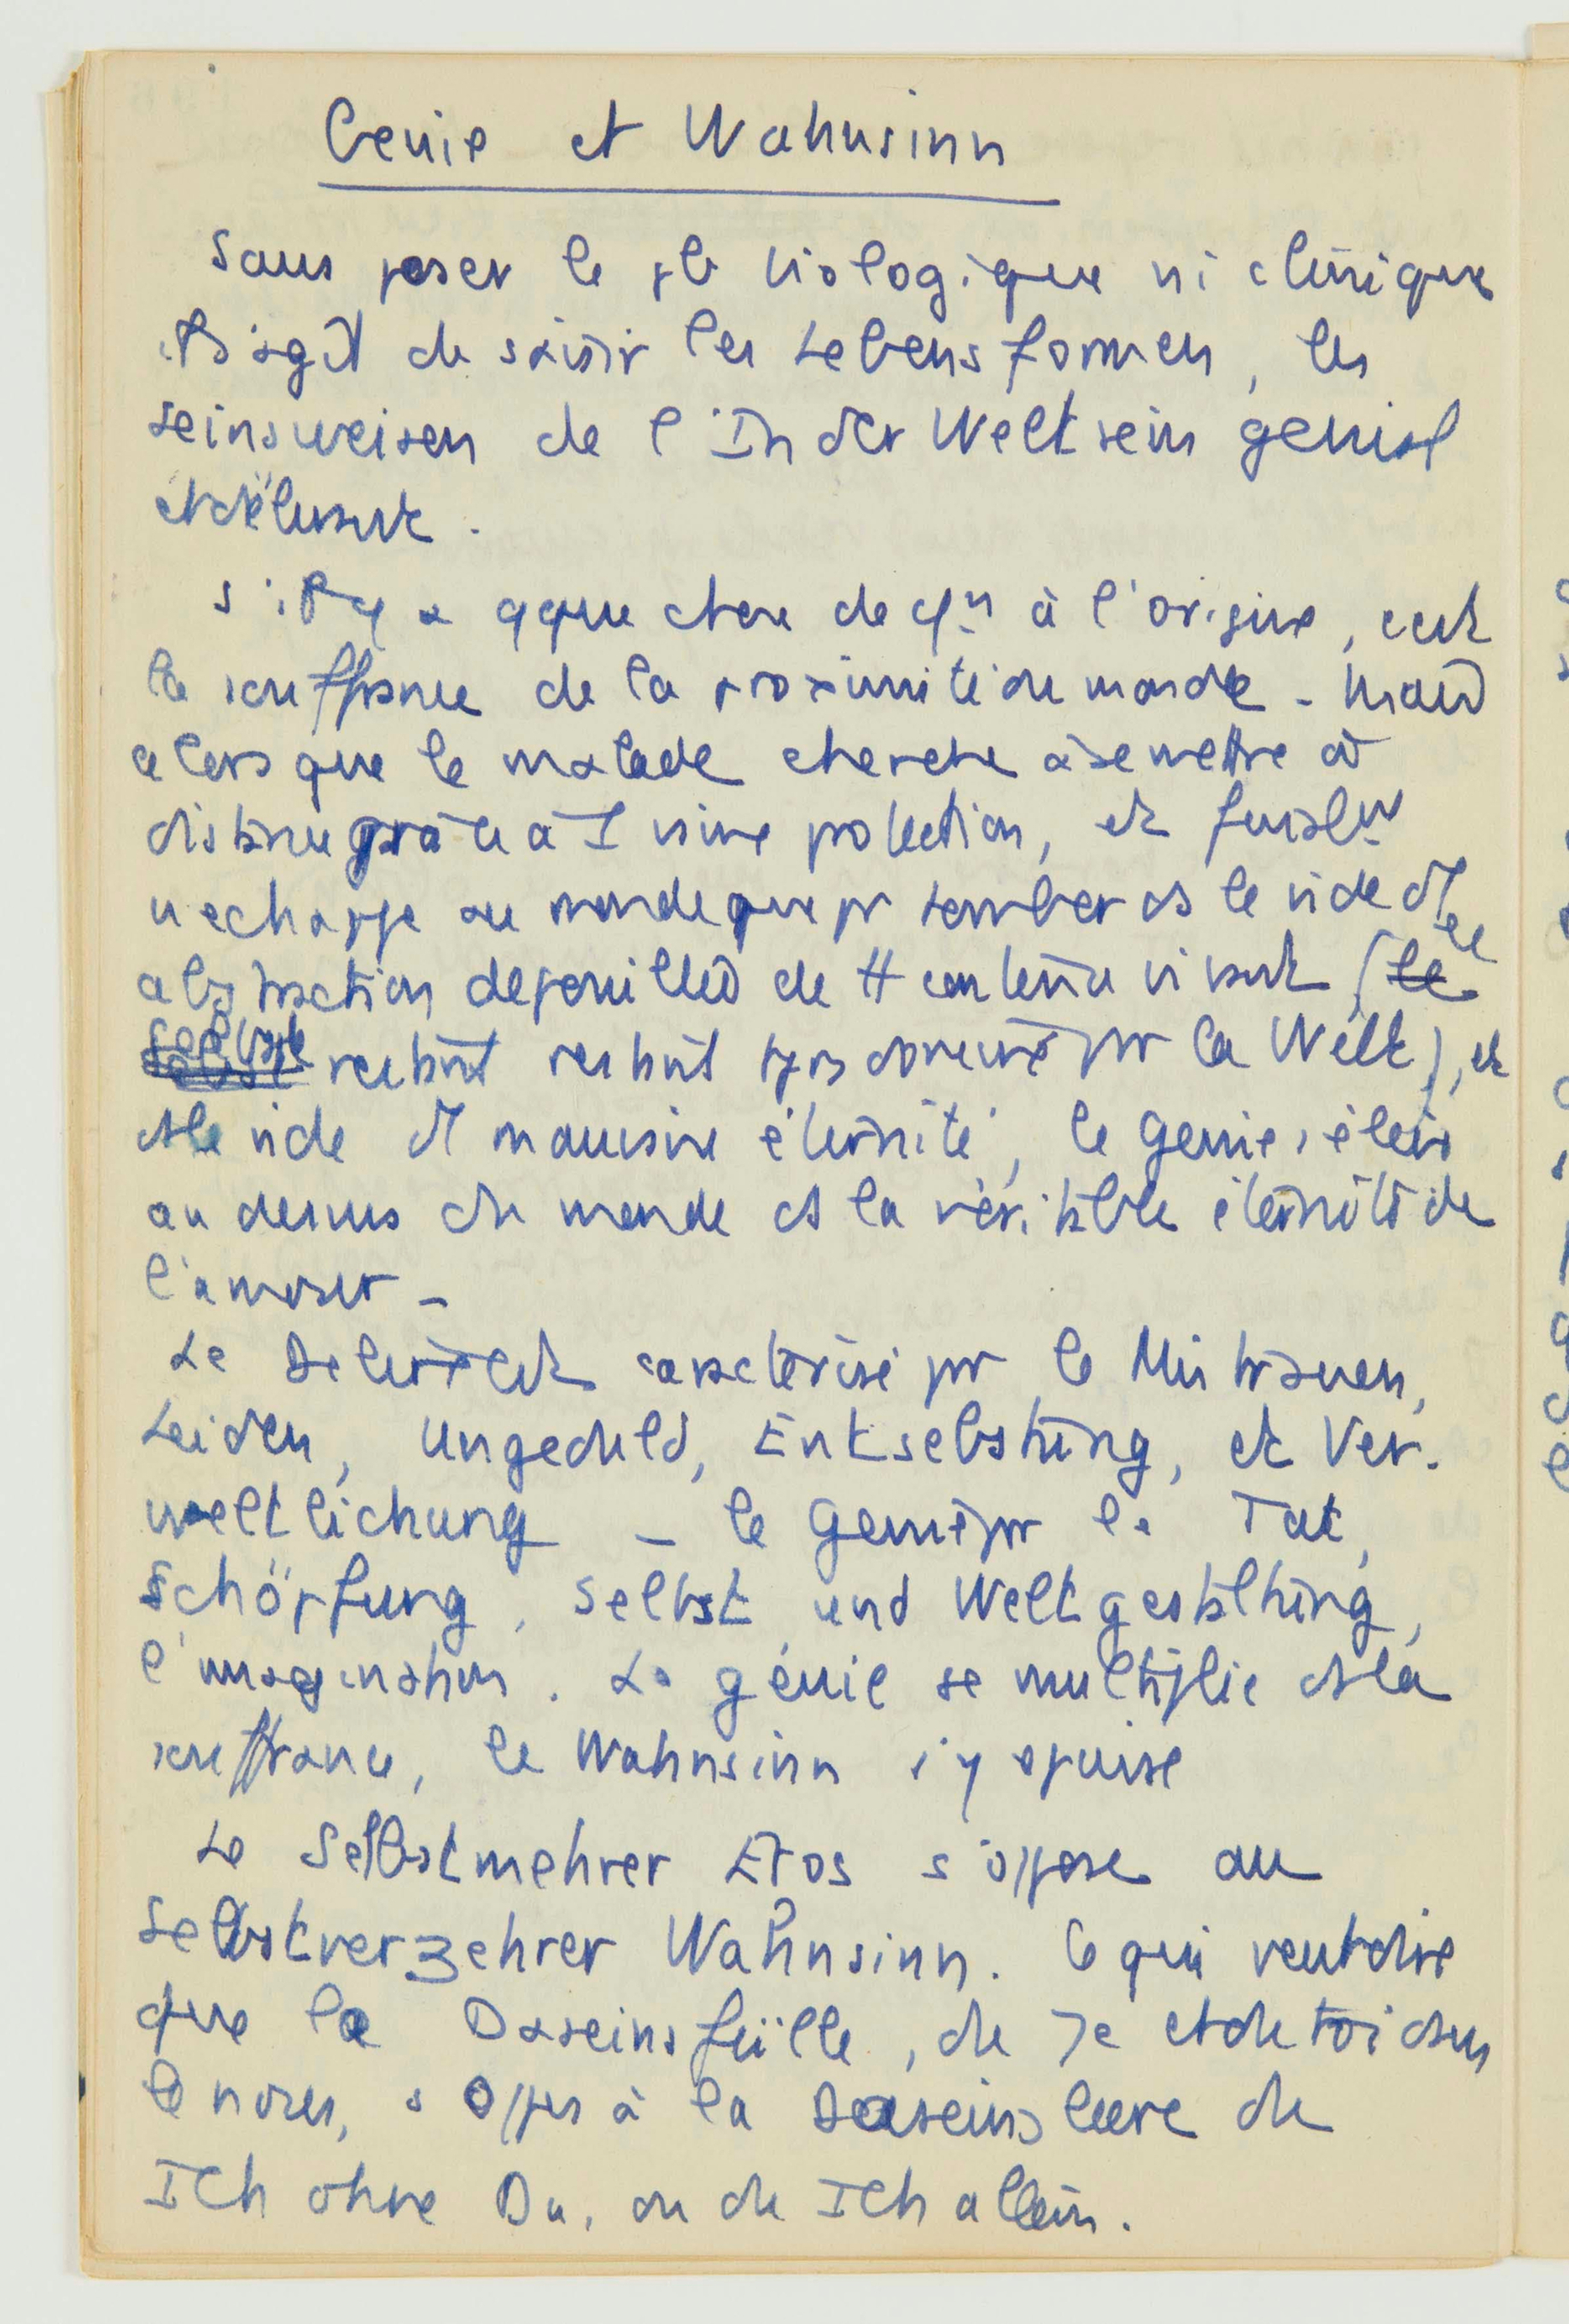 Genie et Wahnsinn
Sans poser le pb biologique ni clinique
il s'agit de saisir les Lebensformen, les
Seinsweisen de l'In der Welt sein genial
et délirant.
S'il y a qque chose de cun à l'origine, c'est
la souffrance de la proximité du monde - Mais
alors que le malade cherche à se mettre à
distance grâce à l vaine protection, et finalnt
n'echappe au monde que pr tomber ds le vide d'l
abstraction depouillée de tt contenu vivant (le
restant restant tjrs dominé pr la Welt), et
ds le vide d'l mauvaise éternité, le genie s'élève
au dessus du monde ds la véritable éternité de
l'amour -
Le Délire est caractérisé pr le Misstrauen,
Leiden, Ungeduld, Entselbstung, et Ver-
weltlichung - le Genie pr la Tat,
Schöpfung, Selbst und Weltgestaltung,
l'imagination. Le génie se multiplie ds la
souffrance, le Wahnsinn s'y épuise
Le Selbstmehrer Eros s'oppose au
Selbstverzehrer Wahnsinn. Ce qui veut dire
que la Daseinsfülle, du Je et du toi dans
le nous, s'oppose à la Daseinsleere du
Ich ohne Du, ou du Ich allein.